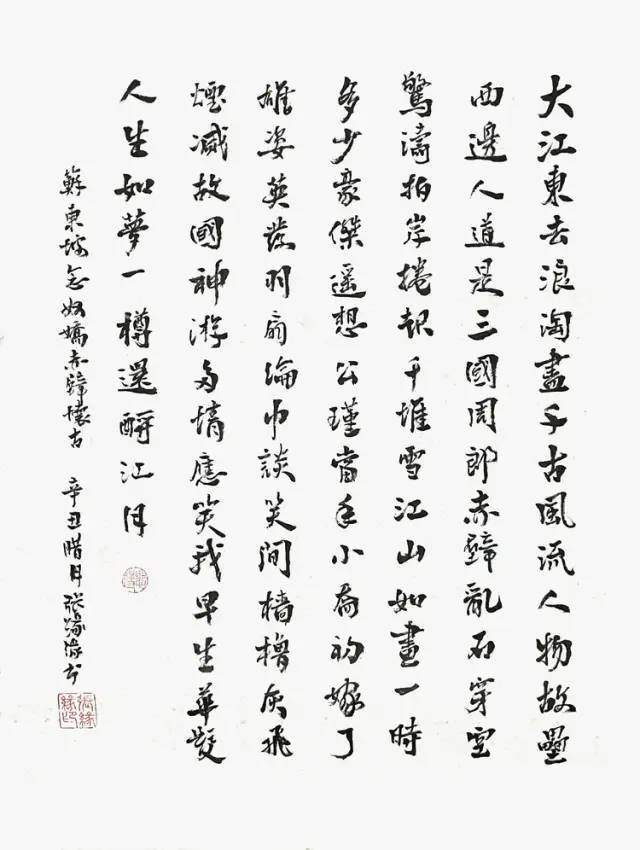 大江東去浪淘盡千古風流人物故壘
西邊人道是三國周郎赤壁亂石穿空
驚濤拍岸捲起千堆雪江山如畫一時
多少豪傑遥想公瑾當年小喬初嫁了
雄姿英發羽扇綸巾談笑間檣櫓灰飛
煙滅故國神游多情應笑我早生華髮
人生如夢一樽還酹江月
蘇東坡念奴嬌赤壁懷古 辛丑腊月張緣書